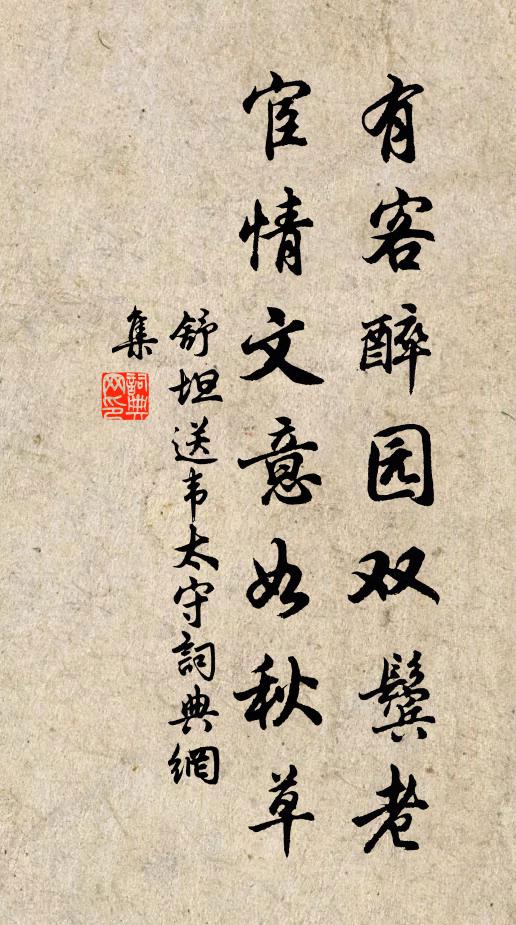 有客醉园双鬓老
宦情文意如秋草
舒坦送韦太守詞典網
集
詞典
网印